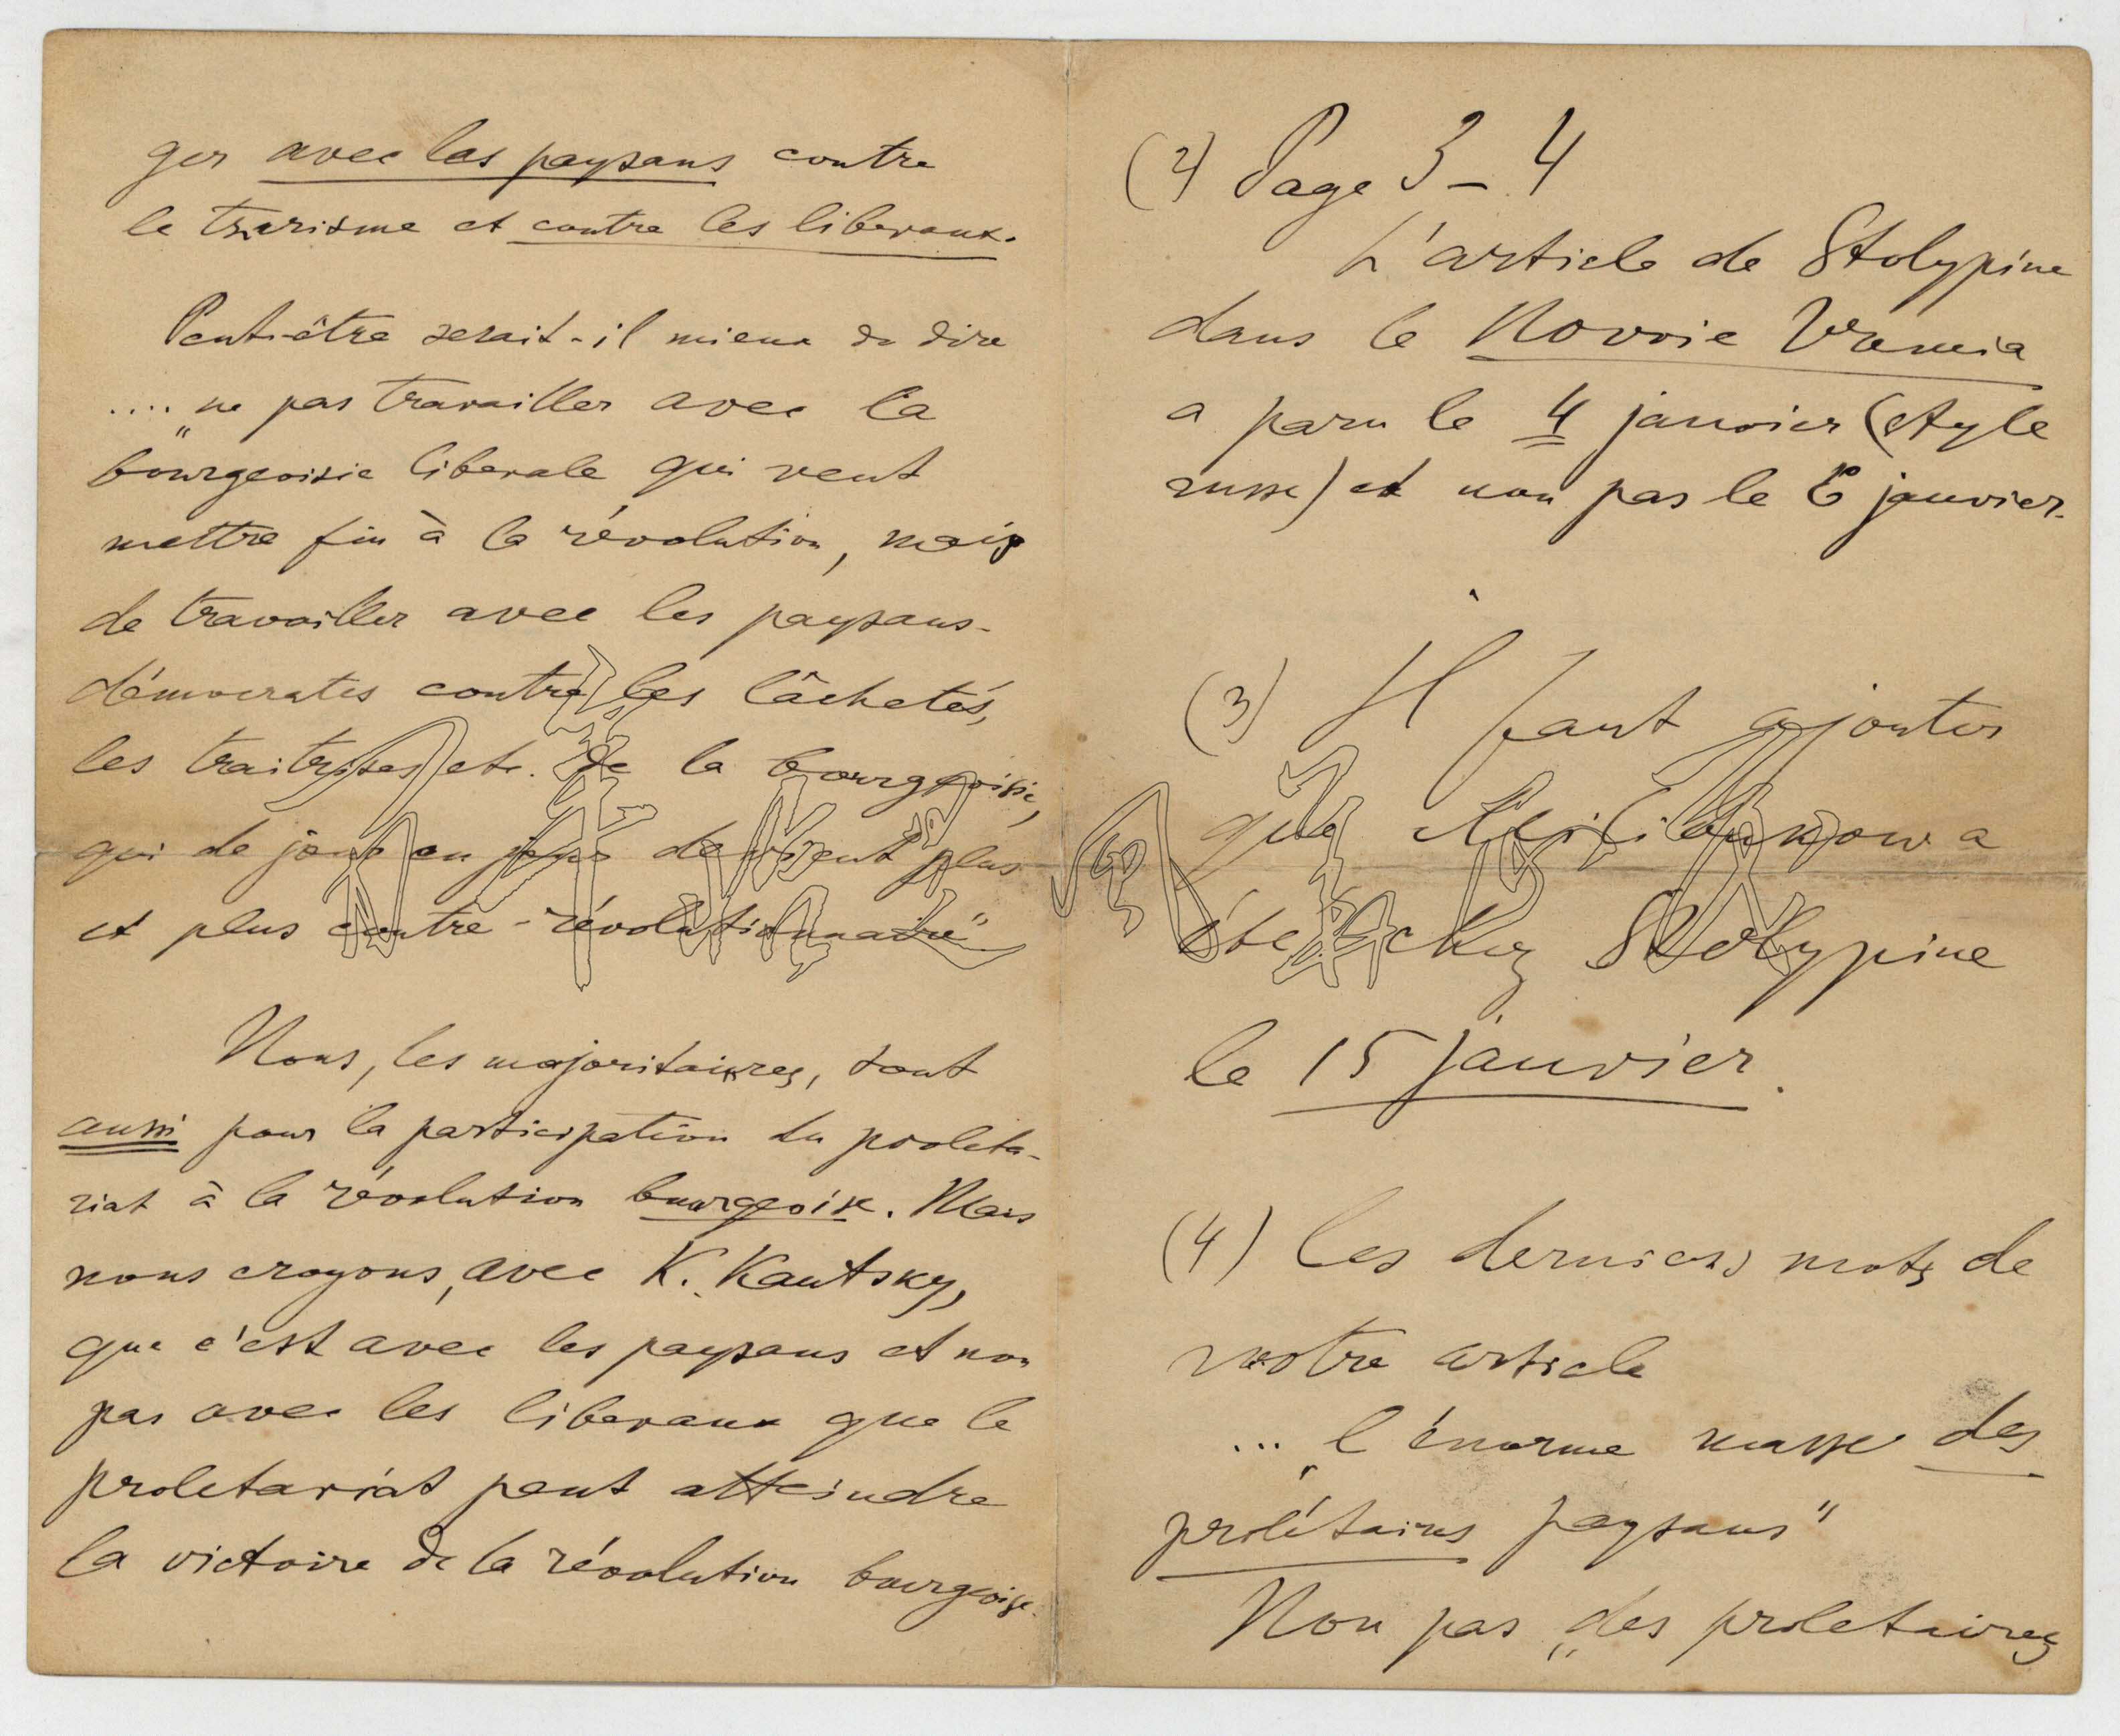 ger avec les paysans contre
le tzarisme et contre les liberaux.
Peut-être serait-il mieux de dire
.... „ne pas travailler avec la
bourgeoisie liberale qui veut
mettre fin à la révolution, mais
de travailler avec les paysans-
démocrates contre les lâchetés,
les traitrises etc. de la bourgeoisie,
qui de jour en jour devient plus
et plus contre-révolutionnaire"
Nous, les majoritaires, sont
aussi pour la participation du proleta-
riat à la révolution bourgeoise. Mais
nous croyons, avec K. Kautsky,
que c'est avec les paysans et non
pas avec les liberaux que le
proletariat peut atteindre
la victoire de la révolution bourgeoise.
(2) Page 3-4
L'article de Stolypine
dans le Novoie Vremia
a paru le 4 janvier (style
russe) et non pas le 6 janvier.
(3) Il faut ajouter
que Milioukow a
été chez Stolypine
le 15 janvier.
(4) les derniers mots de
votre article
... „l'énorme masse des
prolétaires paysans"
Non pas „des proletaires